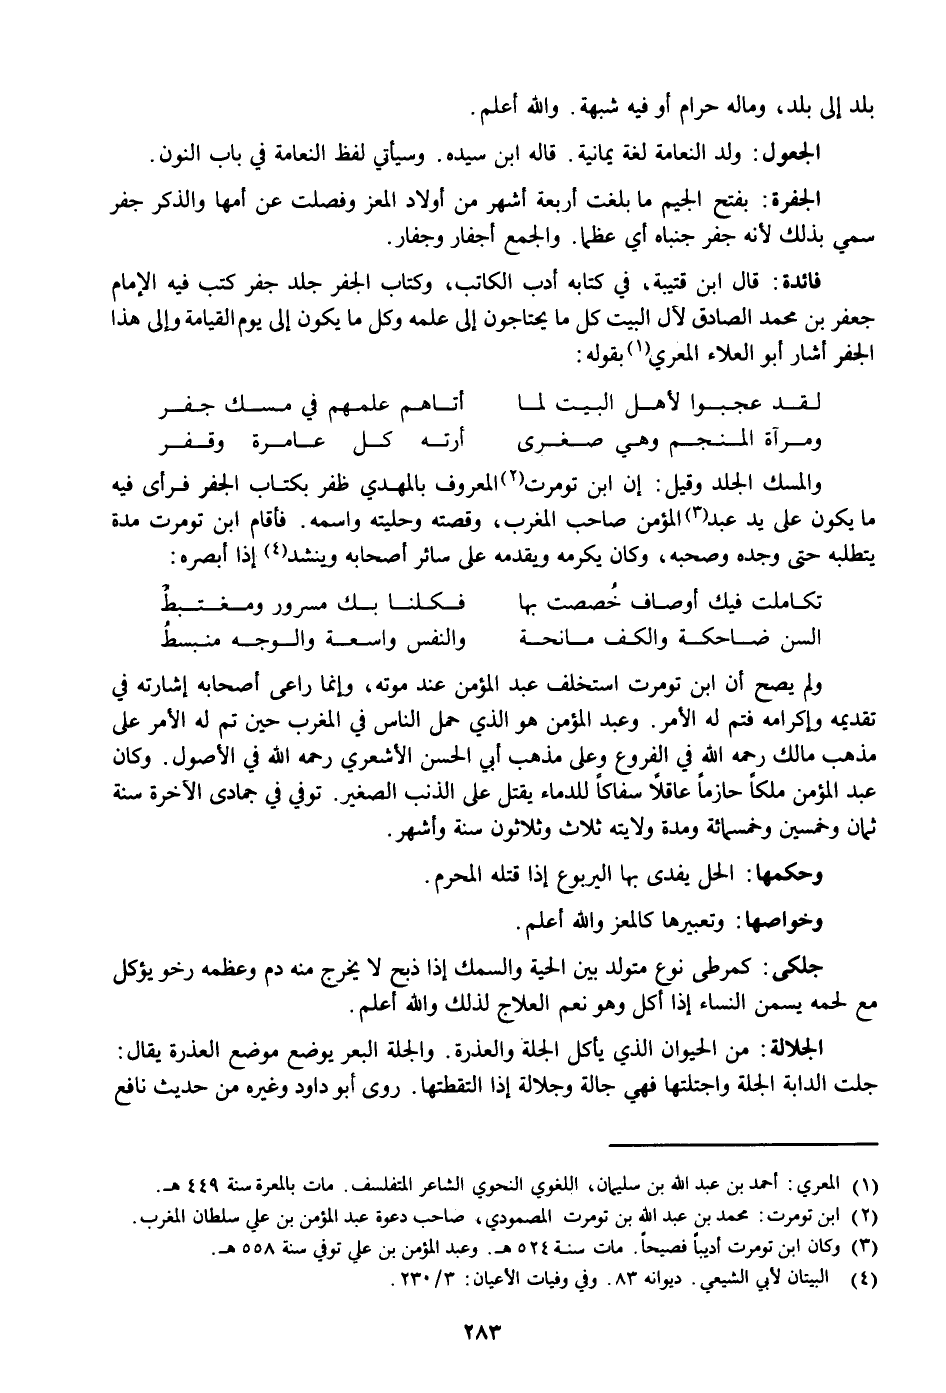 بلد إلى بلد، وماله حرام أو فيه شبهة. والله أعلم.
الجعول: ولد النعامة لغة يمانية. قاله ابن سيده. وسيأتي لفظ النعامة في باب النون.
الجفرة: بفتح الجيم ما بلغت أربعة أشهر من أولاد المعز وفصلت عن أمها والذكر جفر
سمي بذلك لأنه جفر جنباه أي عظما. والجمع أجفار وجفار.
فائدة: قال ابن قتيبة، في كتابه أدب الكاتب، وكتاب الجفر جلد جفر كتب فيه الإمام
جعفر بن محمد الصادق لآل البيت كل ما يحتاجون إلى علمه وكل ما يكون إلى يوم القيامة وإلى هذا
الجفر أشار أبو العلاء المعري(١) بقوله:
لقد عجبوا لأهل البيت لما أتاهم علمهم في مسك جفر
ومرآة المنجم وهي صغرى أرته كل عامرة وقفر
والمسك الجلد وقيل: إن ابن تومرت(٢) المعروف بالمهدي ظفر بكتاب الجفر فرأى فيه
ما يكون على يد عبد(٣) المؤمن صاحب المغرب، وقصته وحليته واسمه. فأقام ابن تومرت مدة
يتطلبه حتى وجده وصحبه، وكان يكرمه ويقدمه على سائر أصحابه وينشد(٤) إذا أبصره:
تكاملت فيك أوصاف خُصصت بها فكلنا بك مسرور ومغتبطُ
السن ضاحكة والكف مانحة والنفس واسعة والوجه منبسطُ
ولم يصح أن ابن تومرت استخلف عبد المؤمن عند موته، وإنما راعى أصحابه إشارته في
تقديمه وإكرامه فتم له الأمر. وعبد المؤمن هو الذي حمل الناس في المغرب حين تم له الأمر على
مذهب مالك رحمه الله في الفروع وعلى مذهب أبي الحسن الأشعري رحمه الله في الأصول. وكان
عبد المؤمن ملكاً حازماً عاقلاً سفاكاً للدماء يقتل على الذنب الصغير. توفي في جمادى الآخرة سنة
ثمان وخمسين وخمسمائة ومدة ولايته ثلاث وثلاثون سنة وأشهر.
وحكمها: الحل يفدى بها اليربوع إذا قتله المحرم.
وخواصها: وتعبيرها كالمعز والله أعلم.
جلكى: كمرطى نوع متولد بين الحية والسمك إذا ذبح لا يخرج منه دم وعظمه رخو يؤكل
مع لحمه يسمن النساء إذا أكل وهو نعم العلاج لذلك والله أعلم.
الجلالة: من الحيوان الذي يأكل الجلة والعذرة. والجلة البعر يوضع موضع العذرة يقال:
جلت الدابة الجلة واجتلتها فهي جالة وجلالة إذا التقطتها. روى أبو داود وغيره من حديث نافع
(١) المعري: أحمد بن عبد الله بن سليمان، اللغوي النحوي الشاعر المتفلسف. مات بالمعرة سنة ٤٤٩ هـ.
(٢) ابن تومرت: محمد بن عبد الله بن تومرت المصمودي، صاحب دعوة عبد المؤمن بن علي سلطان المغرب.
(٣) وكان ابن تومرت أديباً فصيحاً. مات سنة ٥٢٤ هـ. وعبد المؤمن بن علي توفي سنة ٥٥٨ هـ.
(٤) البيتان لأبي الشيعي. ديوانه ٨٣. وفي وفيات الأعيان: ٣/ ٢٣٠.
٢٨٣